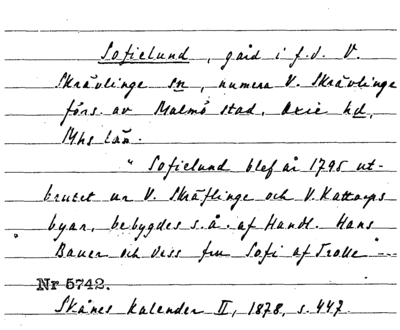 Sofielund, gård i f.d. V.
Skrävlinge sn, numera V. Skrävlinge
förs. av Malmö stad, Oxie hd,
Mhs län.
" Sofielund blef år 1795 ut-
brutet ur V. Skräflinge och V. Kattarps
byar, bebygdes s. å. af Handl. Hans
Bauer och dess fru Sofi af Trolle" ---
Nr 5742.
Skånes kalender II, 1878, s. 447.